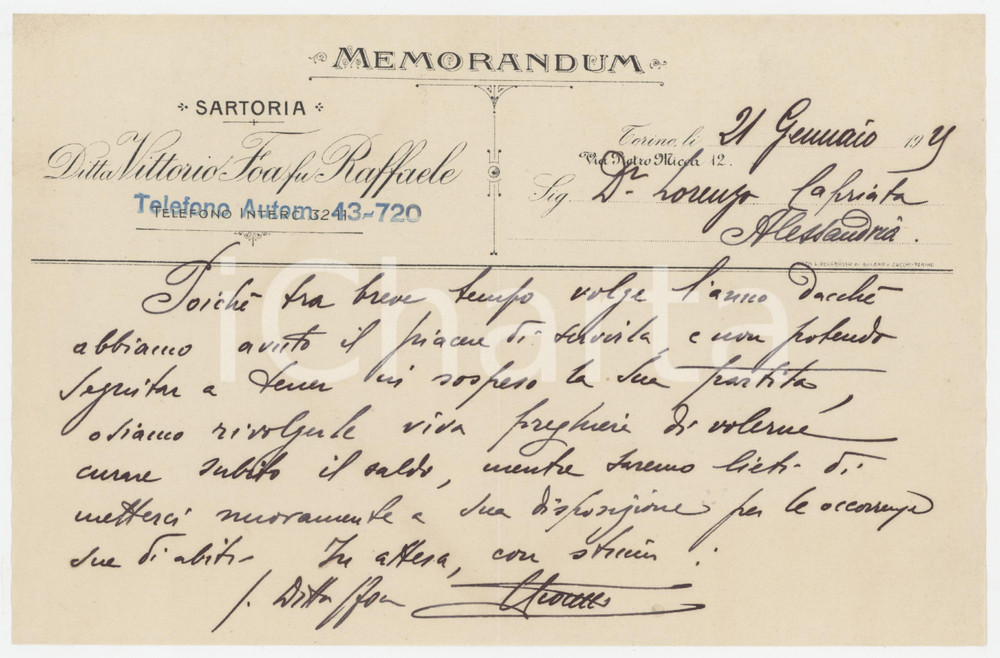 MEMORANDUM
SARTORIA
Ditta Vittorio Foa fu Raffaele
Telefono Autom. 43-720
TELEFONO INTERC 32-11
Torino, li 21 Gennaio 1925
Via Pietro Micca 12.
Sig. Dr. Lorenzo Capriata
Alessandria.
Poichè tra breve tempo volge l'anno dacchè
abbiamo avuto il piacere di servirla, e non potendo
seguitar a tener in sospeso la sua partita,
osiamo rivolgerle viva preghiera di volerne
curare subito il saldo, mentre saremo lieti di
metterci nuovamente a sua disposizione per le occorrenze
sue di abiti. In attesa, con stima.
p. Ditta Foa
iCharta